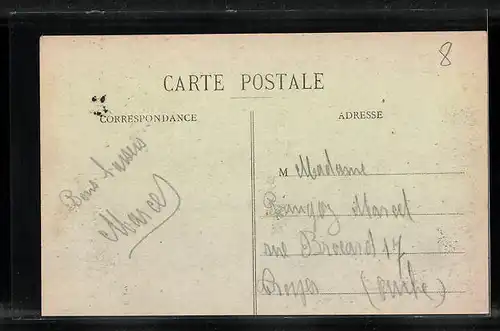 8
CARTE POSTALE
CORRESPONDANCE
ADRESSE
Bons baisers
Marcel
M Madame
Marcel
rue Brocard 17